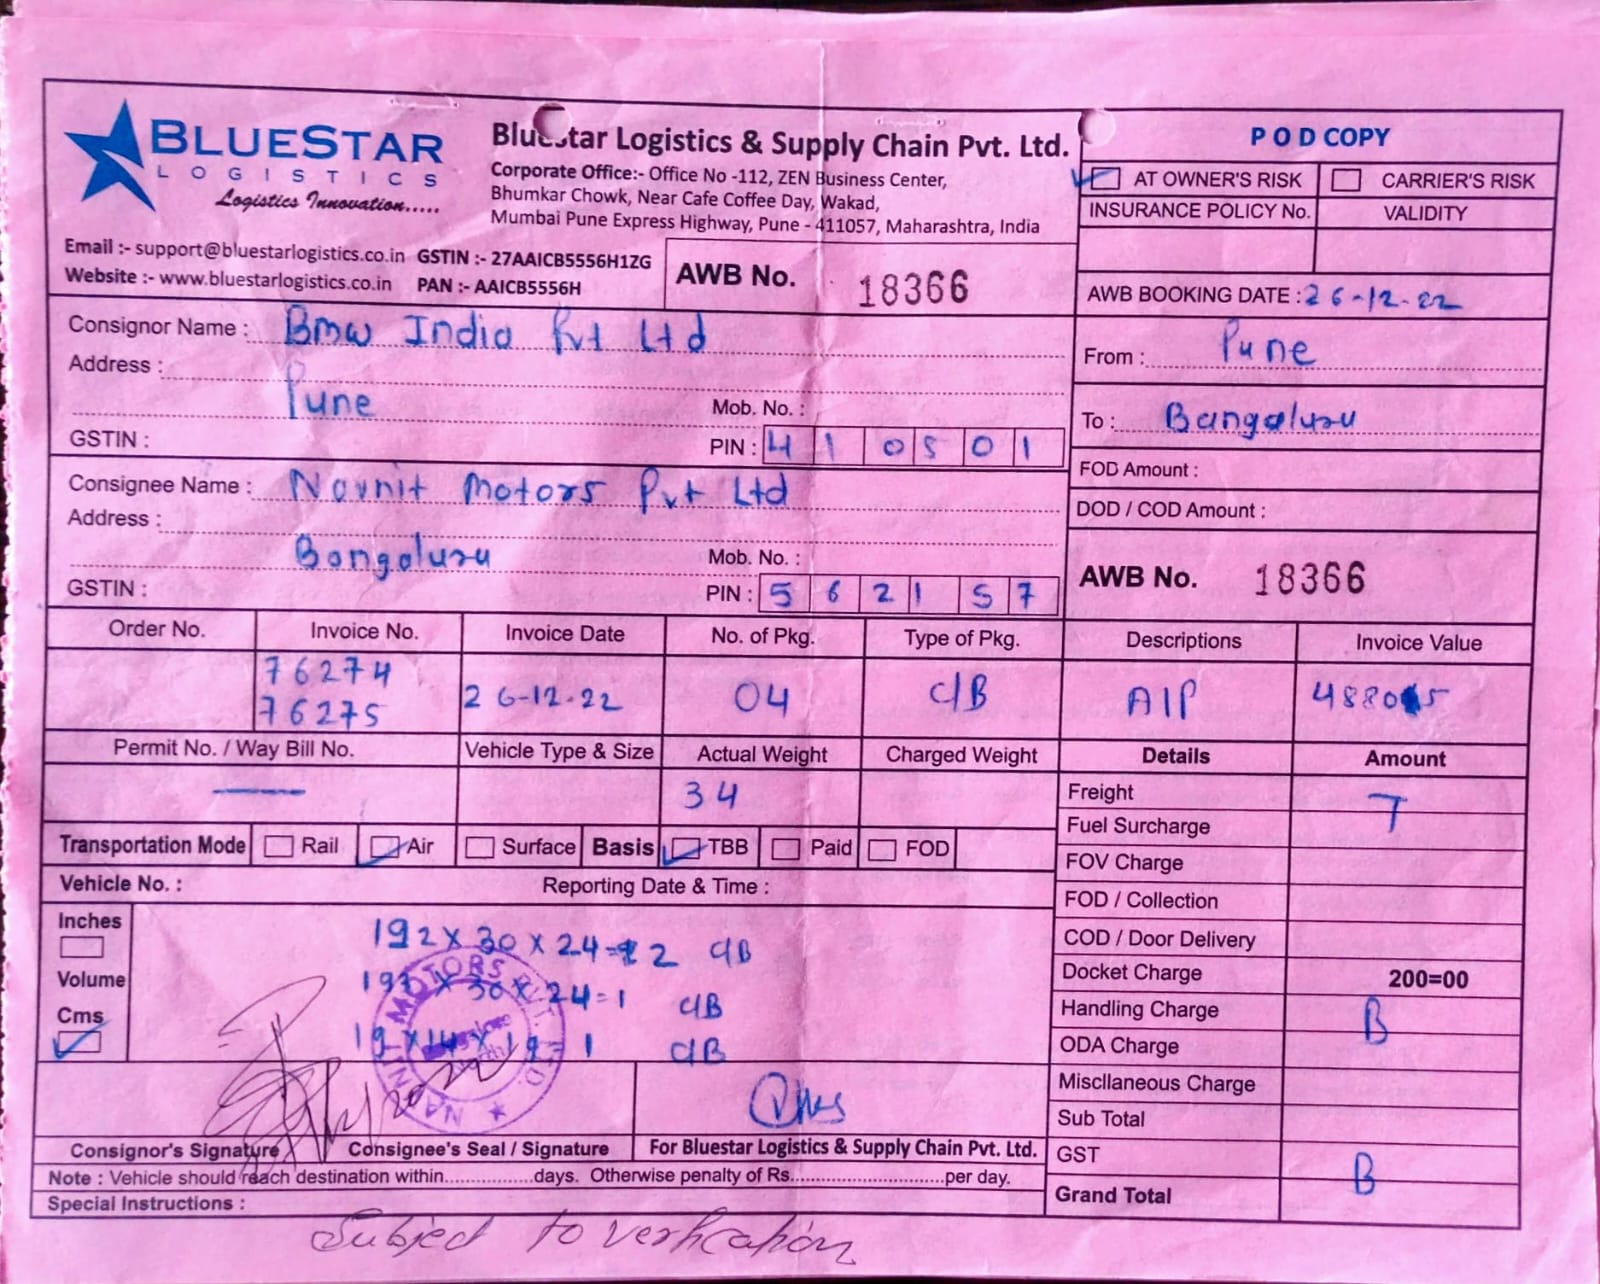 BLUESTAR
LOGISTICS
Logistics Innovation.....
BlueStar Logistics & Supply Chain Pvt. Ltd.
Corporate Office:- Office No -112, ZEN Business Center,
Bhumkar Chowk, Near Cafe Coffee Day, Wakad,
Mumbai Pune Express Highway, Pune - 411057, Maharashtra, India
Email :- support@bluestarlogistics.co.in GSTIN :- 27AAICB5556H1ZG
Website :- www.bluestarlogistics.co.in PAN :- AAICB5556H
AWB No. 18366
POD COPY
AT OWNER'S RISK CARRIER'S RISK
INSURANCE POLICY No. VALIDITY
AWB BOOKING DATE : 26-12-22
Consignor Name : Bmw India Pvt Ltd
Address :
Pune
Mob. No. :
GSTIN : PIN : 410501
From : Pune
To : Bangaluru
FOD Amount :
DOD / COD Amount :
Consignee Name : Navnit Motors Pvt Ltd
Address :
Bangaluru
Mob. No. :
GSTIN : PIN : 562157
AWB No. 18366
Order No. Invoice No. Invoice Date No. of Pkg. Type of Pkg. Descriptions Invoice Value
76274
76275 26-12-22 04 C/B A/P
Permit No. / Way Bill No. Vehicle Type & Size Actual Weight Charged Weight Details Amount
— 34
Freight T
Fuel Surcharge
Transportation Mode Rail Air Surface Basis TBB Paid FOD
FOV Charge
Vehicle No. : Reporting Date & Time :
FOD / Collection
COD / Door Delivery
Docket Charge 200=00
Handling Charge B
ODA Charge
Miscllaneous Charge
Sub Total
GST B
Grand Total
Inches
Volume
Cms
192 x 30 x 24 = 2 C/B
x 30 x 24 = 1 C/B
19 x 14 x 19 1 C/B
NAVNIT MOTORS PVT. LTD.
Consignor's Signature Consignee's Seal / Signature For Bluestar Logistics & Supply Chain Pvt. Ltd.
Note : Vehicle should reach destination within.................days. Otherwise penalty of Rs.............................per day.
Special Instructions :
Subject to verification